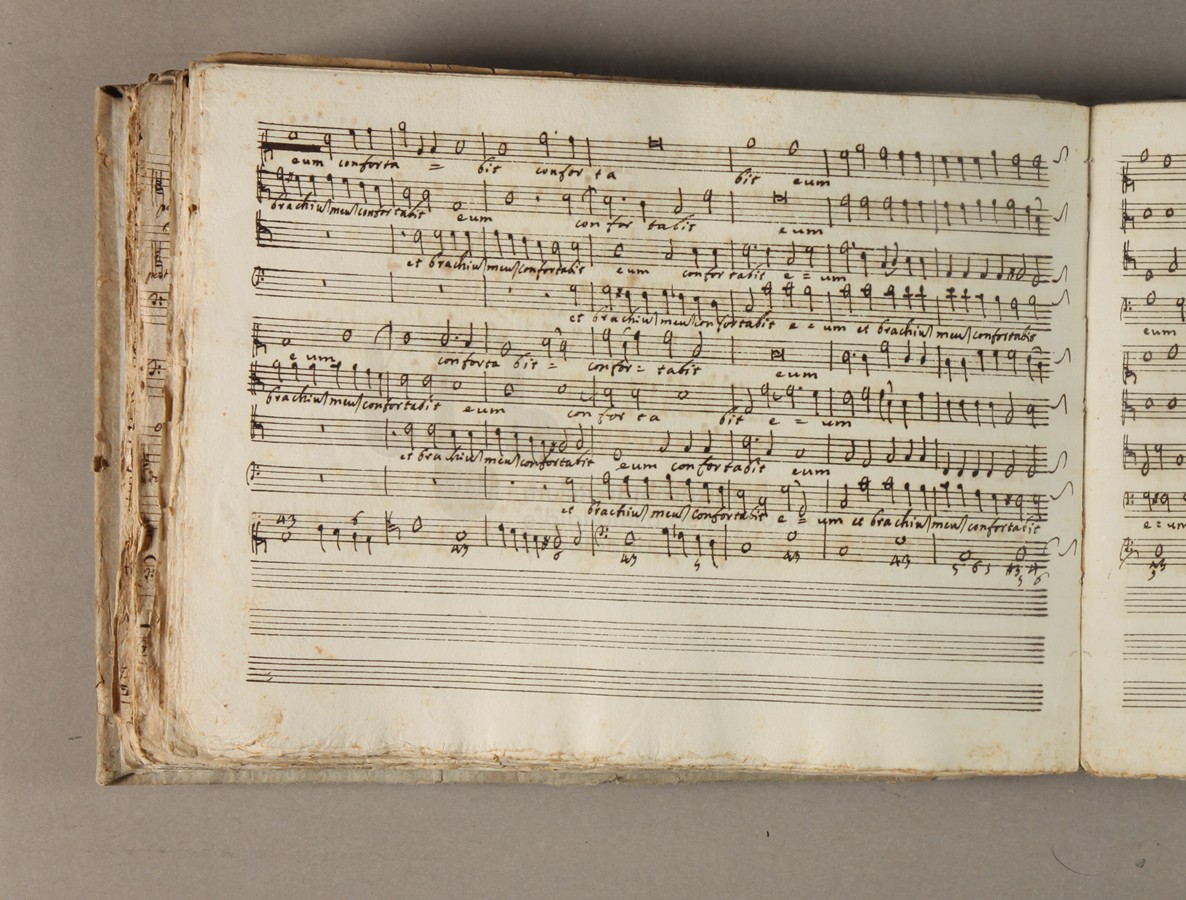 eum conforta = bit confor ta bit eum
brachiu meu confortabit eum con for tabit eum
et brachiu meu confortabit eum confortabit e = um
et brachiu meu confortabit e = um et brachiu meu confortabit
eum conforta bit = confor = tabit eum
brachiu meu confortabit eum con for ta bit e = um
et brachiu meu confortabit eum confortabit eum
et brachiu meu confortabit e = um et brachiu meu confortabit
eum
e = um